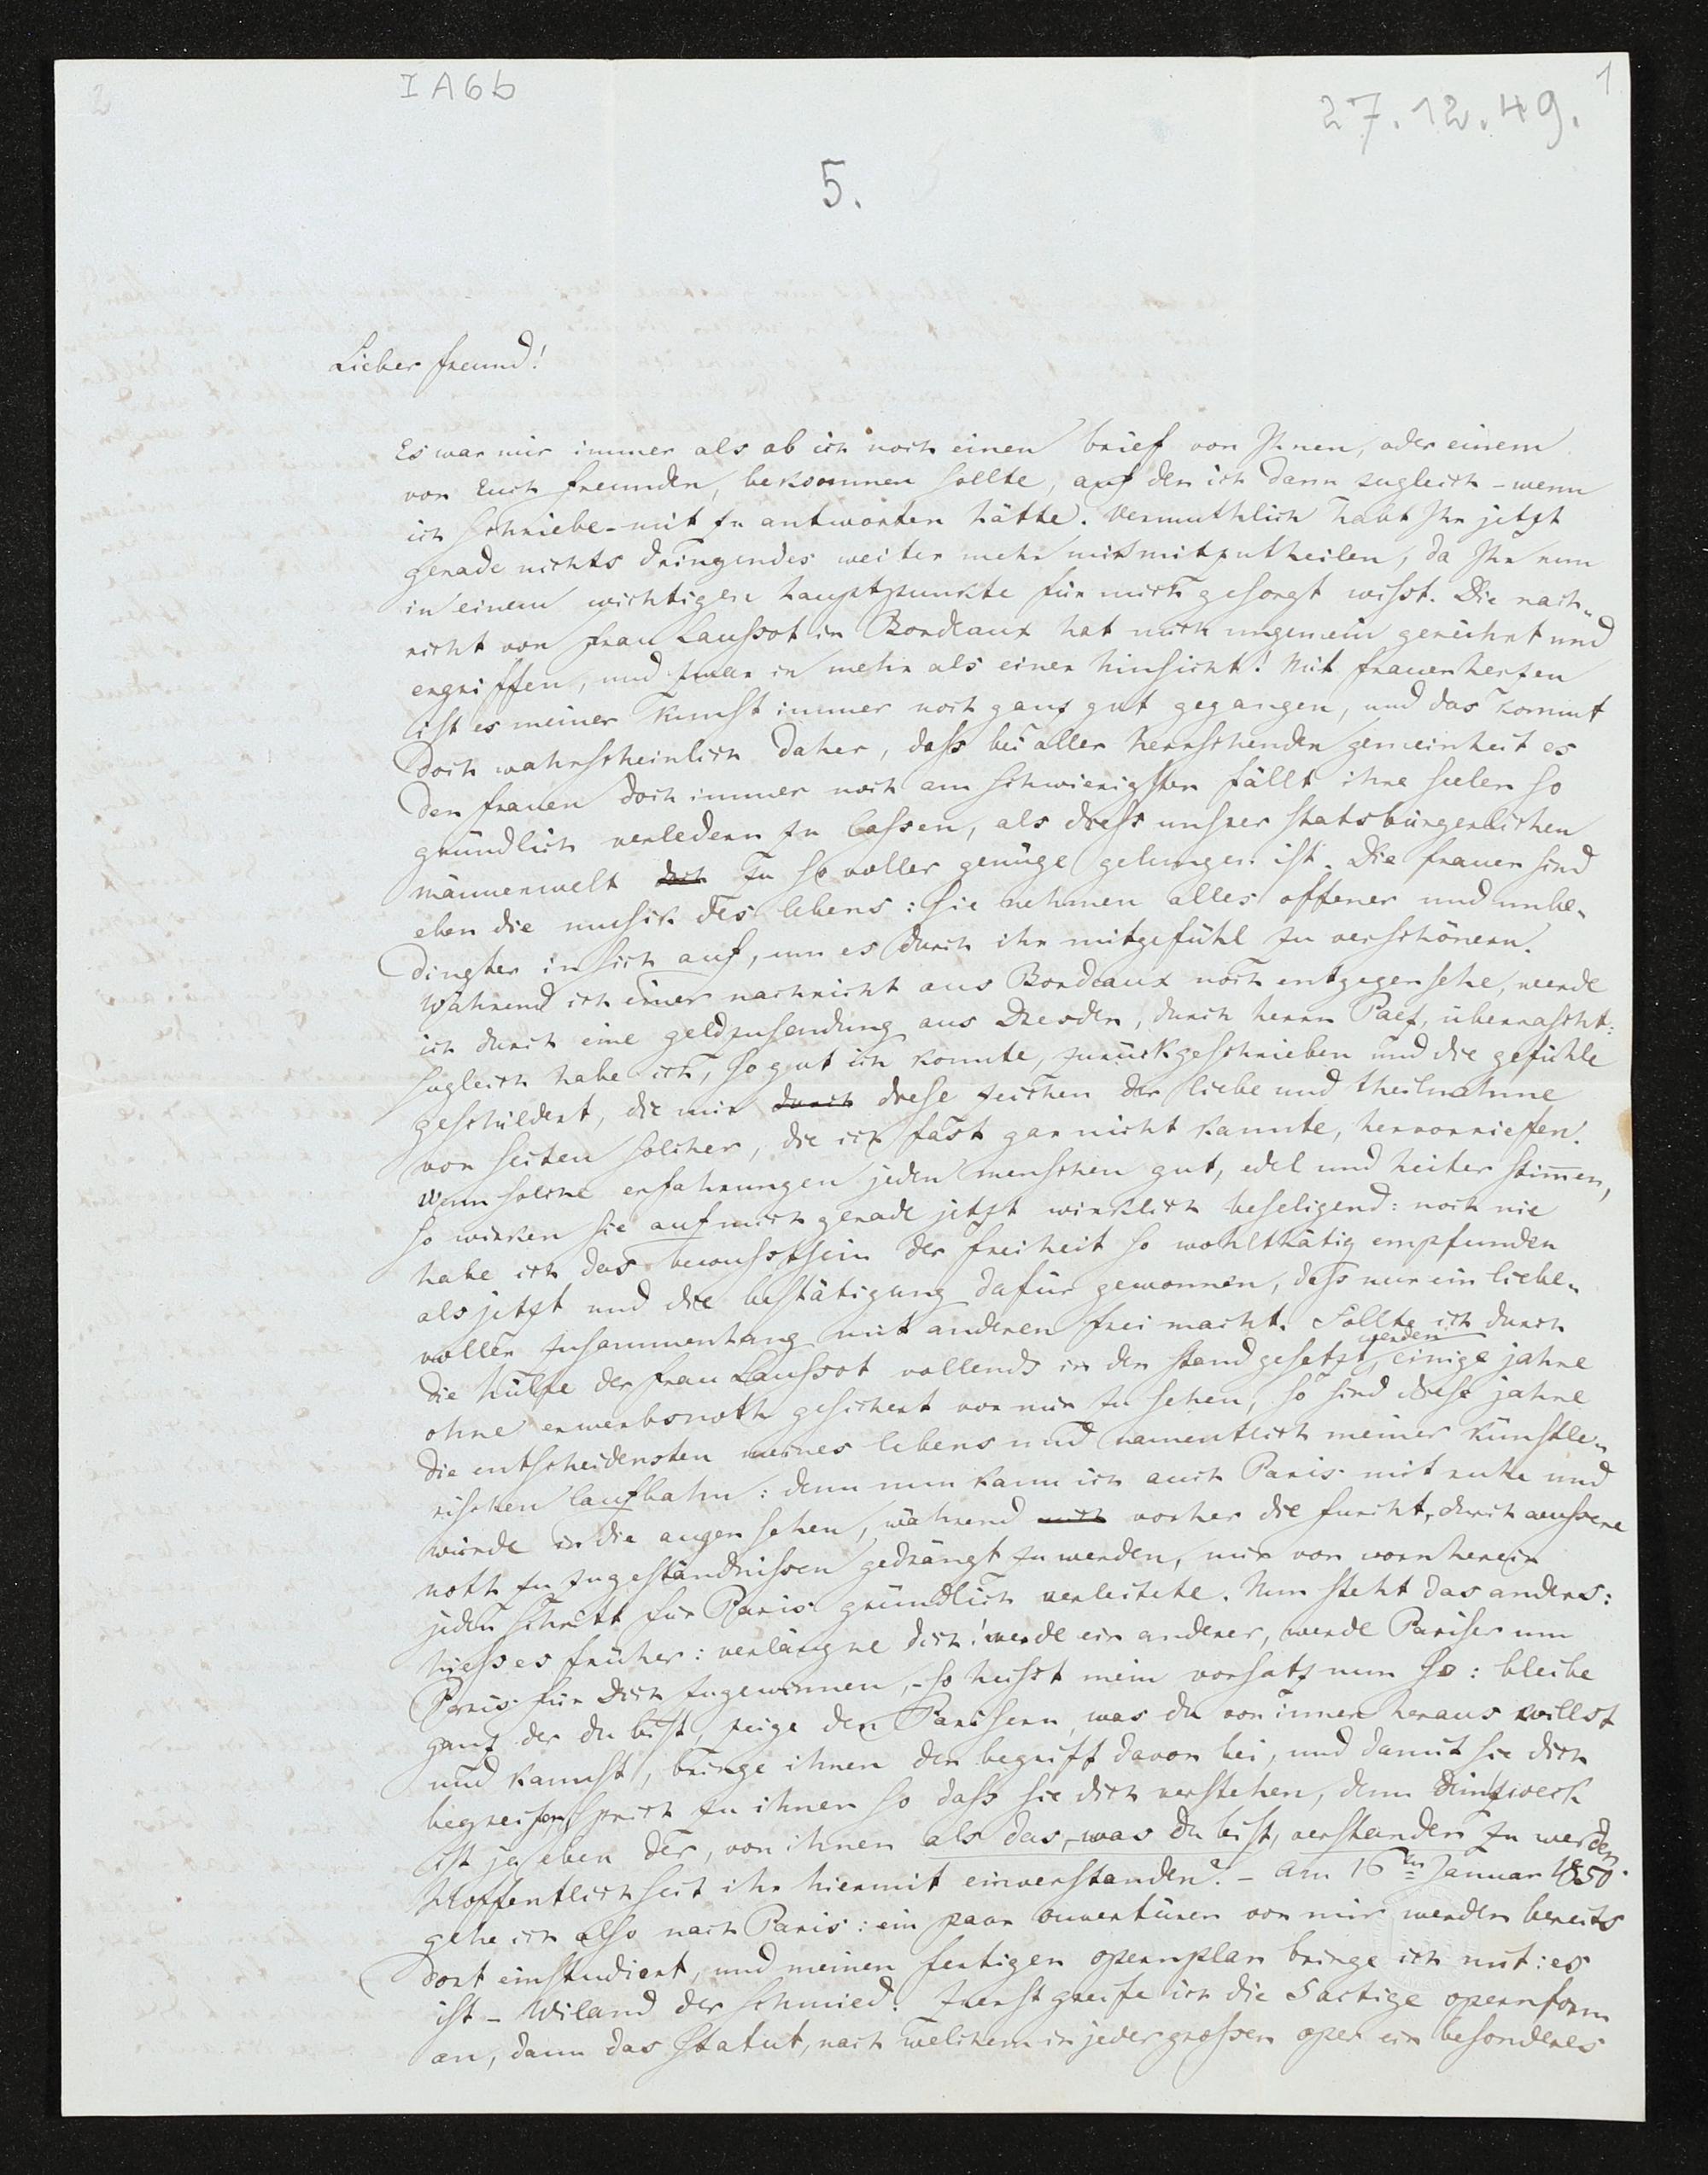 2
I A 6 b
27.12.49.
1
5.
Lieber freund!
Es war mir immer als ob ich noch einen brief von Ihnen, oder einem
von Euch freunden, bekommen sollte, auf den ich dann zugleich – wenn
ich schriebe – mit zu antworten hätte. Vermuthlich habt Ihr jetzt
gerade nichts dringendes weiter mehr mir mitzutheilen, da Ihr nun
in einem wichtigen hauptpunkte für mich gesorgt wisst. Die nach-
richt von frau Laussot in Bordeaux hat mich ungemein gerührt und
ergriffen, und zwar in mehr als einer hinsicht! Mit frauenherzen
ist es meiner kunst immer noch ganz gut gegangen, und das kommt
doch wahrscheinlich daher, dass bei aller herrschenden gemeinheit es
den frauen doch immer noch am schwierigsten fällt ihre seelen so
gründlich verledern zu lassen, als diess unsrer statsbürgerlichen
männerwelt zu so voller genüge gelungen ist. Die frauen sind
eben die musik des lebens: sie nehmen alles offener und unbe-
dingter in sich auf, um es durch ihr mitgefühl zu verschönern.
Während ich einer nachricht aus Bordeaux noch entgegensehe, werde
ich durch eine geldzusendung aus Dresden, durch herrn Paez, überrascht:
sogleich habe ich, so gut ich konnte, zurückgeschrieben und die gefühle
geschildert, die mir durch diese zeichen der liebe und theilnahme
von seiten solcher, die ich fast gar nicht kannte, hervorrieffen.
Wenn solche erfahrungen jeden menschen gut, edel und heiter stimmen,
so wirken sie auf mich gerade jetzt wirklich beseligend: noch nie
habe ich das bewusstsein der freiheit so wohlthätig empfunden
als jetzt und die bestätigung dafür gewonnen, dass nur ein liebe-
voller zusammenhang mit anderen frei macht. Sollte ich durch
die hülfe der frau Laussot vollends in den stand gesetzt werden, einige jahre
ohne erwerbsnoth gesichert vor mir zu sehen, so sind diese jahre
die entscheidensten meines lebens und namentlich meiner künstle-
rischen laufbahn: denn nun kann ich auch Paris mit ruhe und
würde in die augen sehen, während vorher die furcht, durch aussere
noth zu zugeständnissen gedrängt zu werden, mir von vorn herein
jeden schritt für Paris gründlich verleitete. Nun steht das anders:
hiess es früher: verläugne dich! werde ein anderer, werde Pariser um
Paris für dich zu gewinnen, – so heisst mein vorsatz nun so: bleibe
ganz der du bist, zeige den Parisern, was du von innen heraus willst
und kannst, bringe ihnen den begriff davon bei, und damit sie dich
begreifen, sprich zu ihnen so dass sie dich verstehen, denn dein zweck
ist ja eben der, von ihnen als das, was du bist, verstanden zu werden.
Hoffentlich seit ihr hiermit einverstanden? – Am 16ten Januar 1850
gehe ich also nach Paris: ein paar ouvertüren von mir werden bereits
dort einstudiert, und meinen fertigen opernplan bringe ich mit: es
ist – Wiland der schmied. Zuerst greife ich die 5actige opernform
an, dann das statut, nach welchem in jeder grossen oper ein besonderes